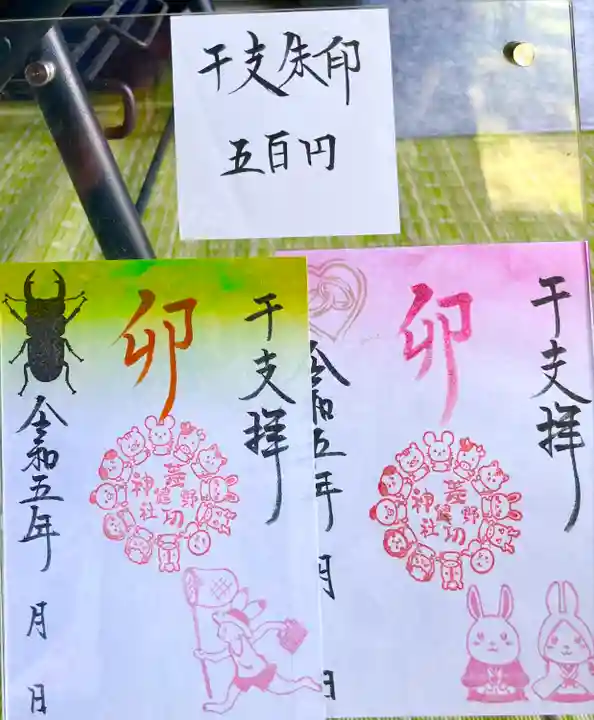 干支朱印
五百円
干支拝
卯
神社
令和五年 月 日
干支拝
卯
神社
令和五年 月 日